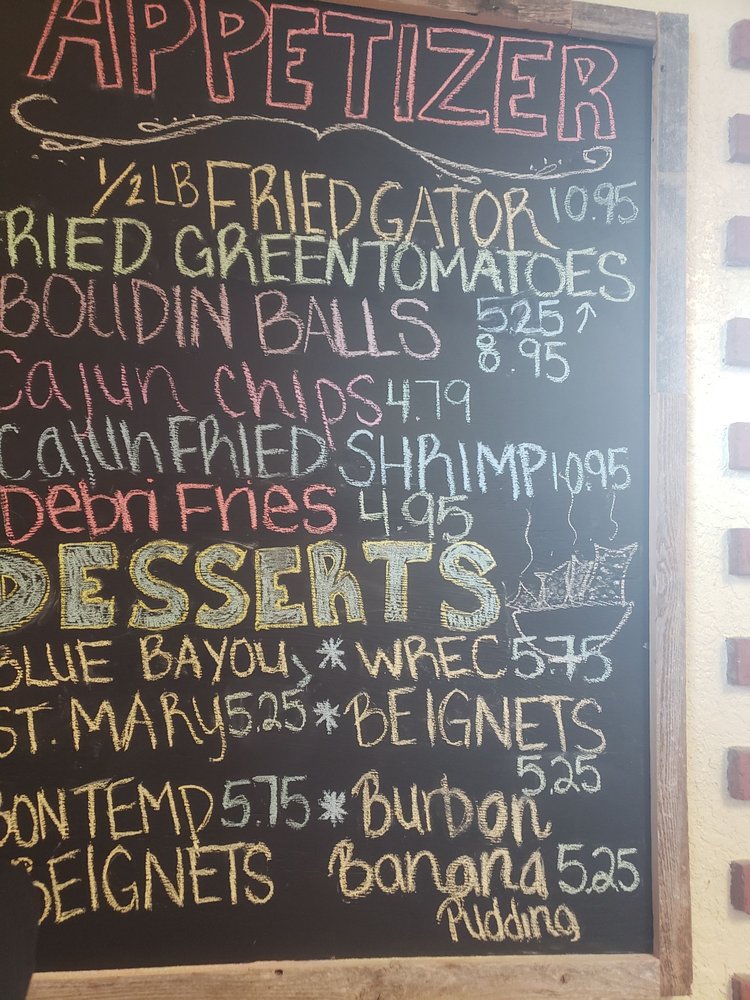 APPETIZER
1/2 LB FRIED GATOR 10.95
RIED GREEN TOMATOES
BOUDIN BALLS 5.25 ↑
8.95
Cajun chips 4.79
Cajun FRIED SHRIMP 10.95
Debri Fries 4.95
DESSERTS
BLUE BAYOU, * WREC 5.75
ST. MARY 5.25 * BEIGNETS
5.25
BON TEMD 5.75 * Burbon
BEIGNETS Banana 5.25
Pudding